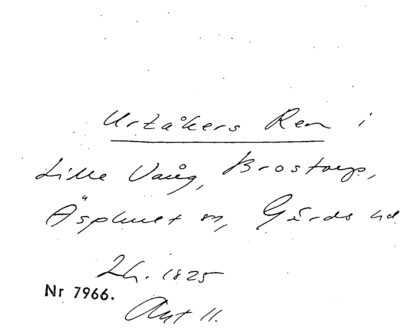 Urtåkers Ren i
Lille Vång, Brostorp,
Äsphult sn, Gärds hd
Lh. 1825
Nr 7966.
Akt 11.